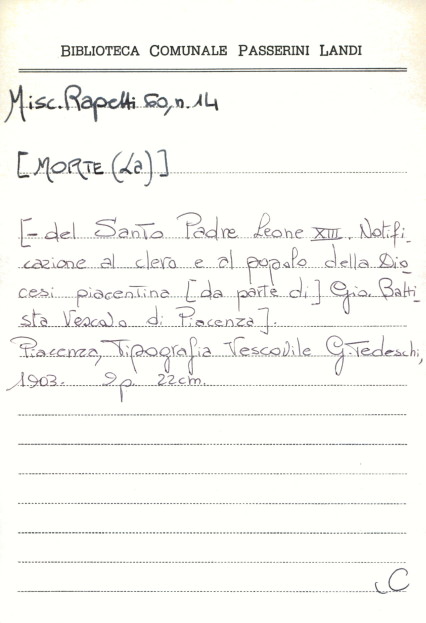 BIBLIOTECA COMUNALE PASSERINI LANDI
Misc. Rapetti 60, n. 14
[MORTE (La)]
[- del Santo Padre Leone XIII. Notifi-
cazione al clero e al popolo della Dio
cesi piacentina [da parte di] Gio. Batti-
sta Vescovo di Piacenza].
Piacenza, Tipografia Vescovile G. Tedeschi,
1903. 2p. 22cm.
C